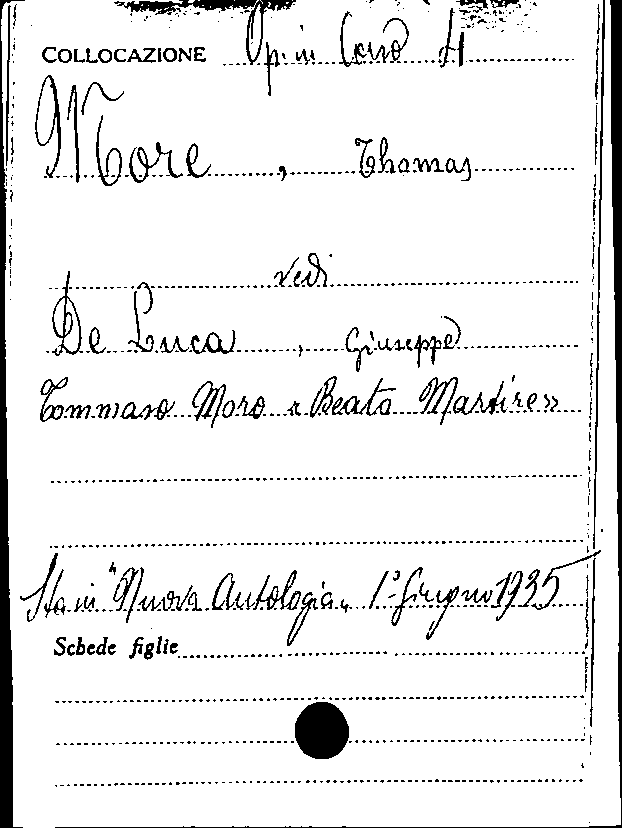 COLLOCAZIONE Op. in Corso 4
More, Thomas
vedi
De Luca, Giuseppe
Tommaso Moro « Beato Martire »
Sta in "Nuova Antologia„ 1° Giugno 1935
Schede figlie